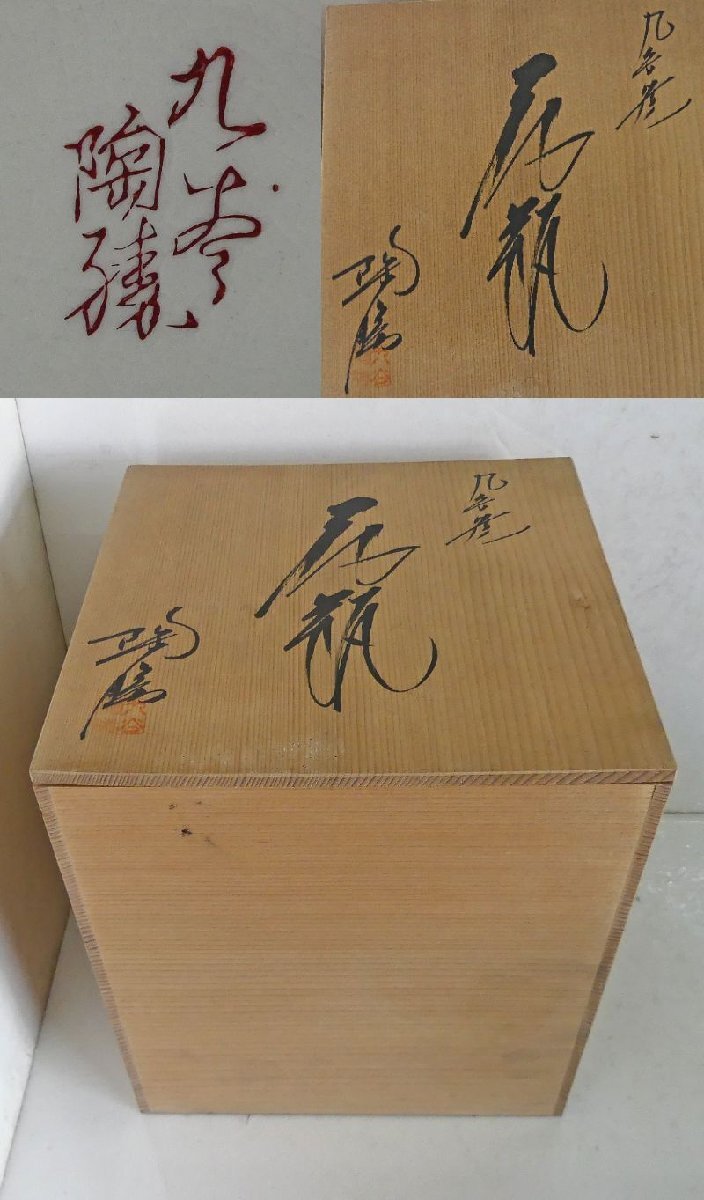 九谷
陶勝
九谷焼
花瓶
陶勝
九谷
九谷焼
花瓶
陶勝
九谷